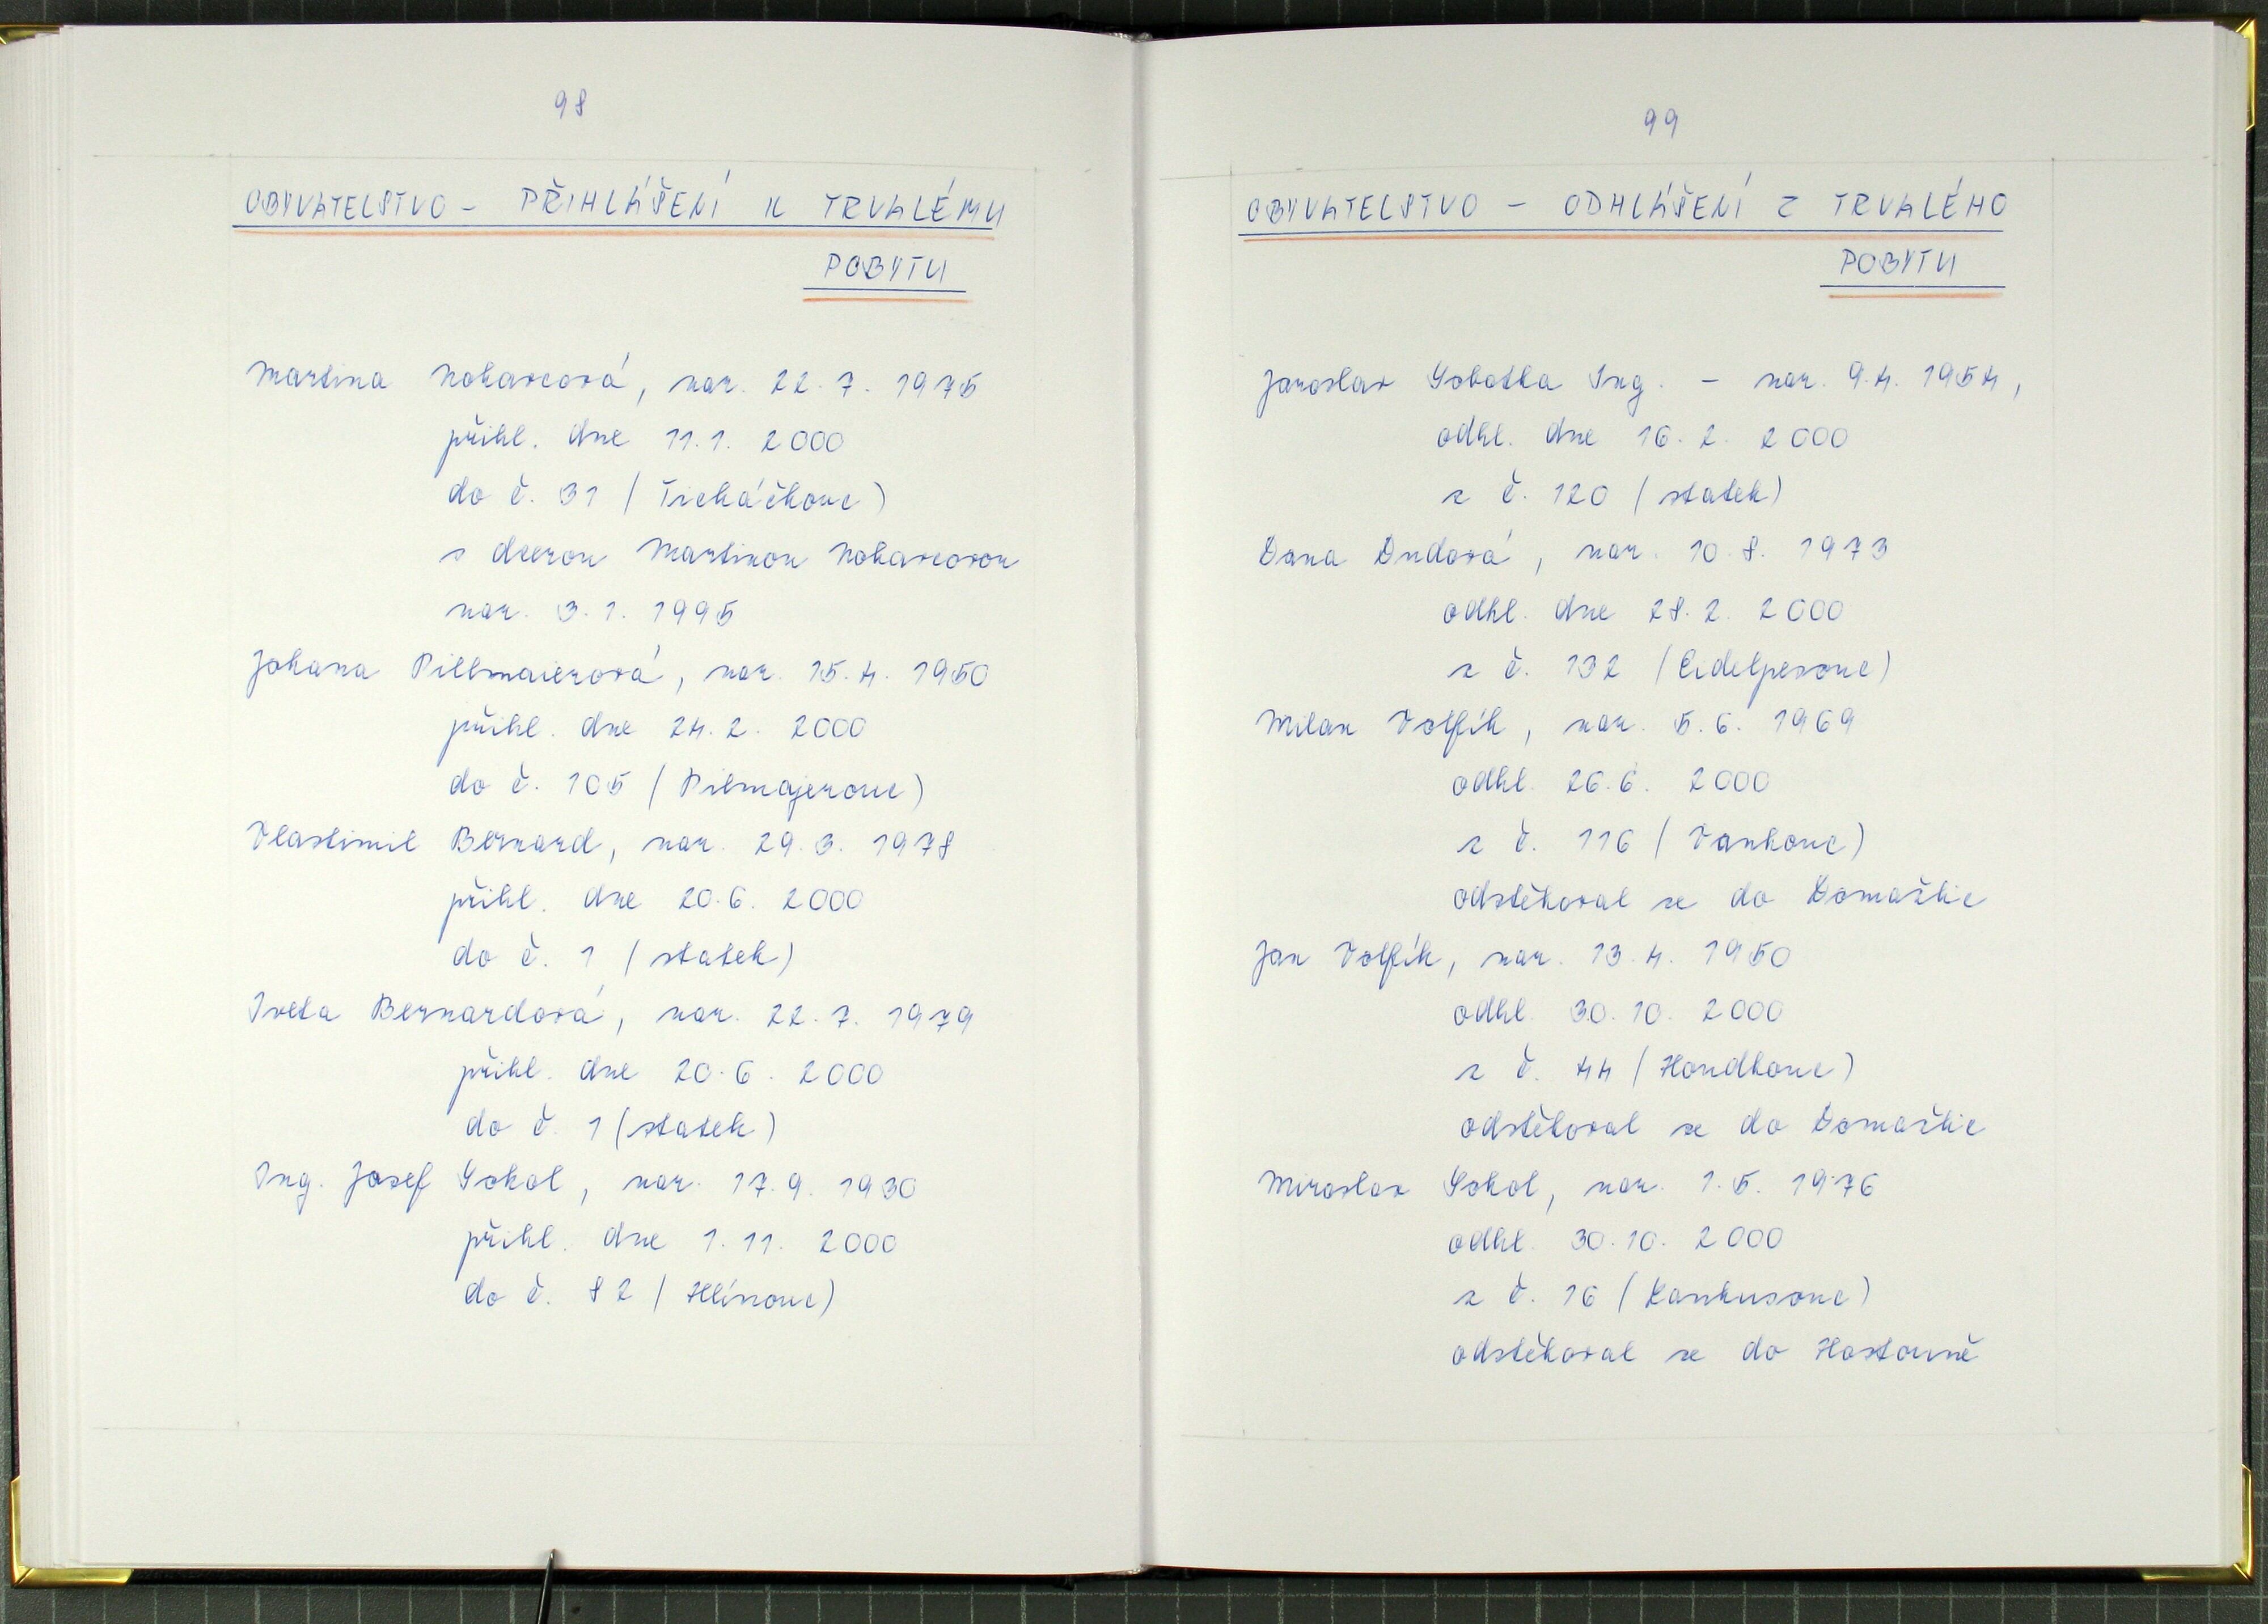 98
OBYVATELSTVO - PŘIHLÁŠENÍ K TRVALÉMU
POBYTU
Martina Noharcová, nar. 22. 7. 1975
přihl. dne 11. 1. 2000
do č. 31 (Ticháčkouc)
s dcerou Martinou Noharcovou
nar. 3. 1. 1995
Johana Pillmaierová, nar. 15. 4. 1950
přihl. dne 24. 2. 2000
do č. 105 (Pilmajerouc)
Vlastimil Bernard, nar. 29. 3. 1978
přihl. dne 20. 6. 2000
do č. 1 (statek)
Iveta Bernardová, nar. 22. 7. 1979
přihl. dne 20. 6. 2000
do č. 1 (statek)
Ing. Josef Sokol, nar. 17. 9. 1930
přihl. dne 1. 11. 2000
do č. 82 (Hlínouc)
99
OBYVATELSTVO - ODHLÁŠENÍ Z TRVALÉHO
POBYTU
Jaroslav Sobotka Ing. - nar. 9. 4. 1954,
odhl. dne 16. 2. 2000
z č. 120 (statek)
Dana Dudová, nar. 10. 8. 1973
odhl. dne 28. 2. 2000
z č. 132 (Eidelpesouc)
Milan Volfík, nar. 5. 6. 1969
odhl. 26. 6. 2000
z č. 116 (Vankouc)
odstěhoval se do Domažlic
Jan Volfík, nar. 13. 4. 1950
odhl. 30. 10. 2000
z č. 44 (Hondkouc)
odstěhoval se do Domažlic
Miroslav Sokol, nar. 1. 5. 1976
odhl. 30. 10. 2000
z č. 16 (Kankusouc)
odstěhoval se do Hostouně